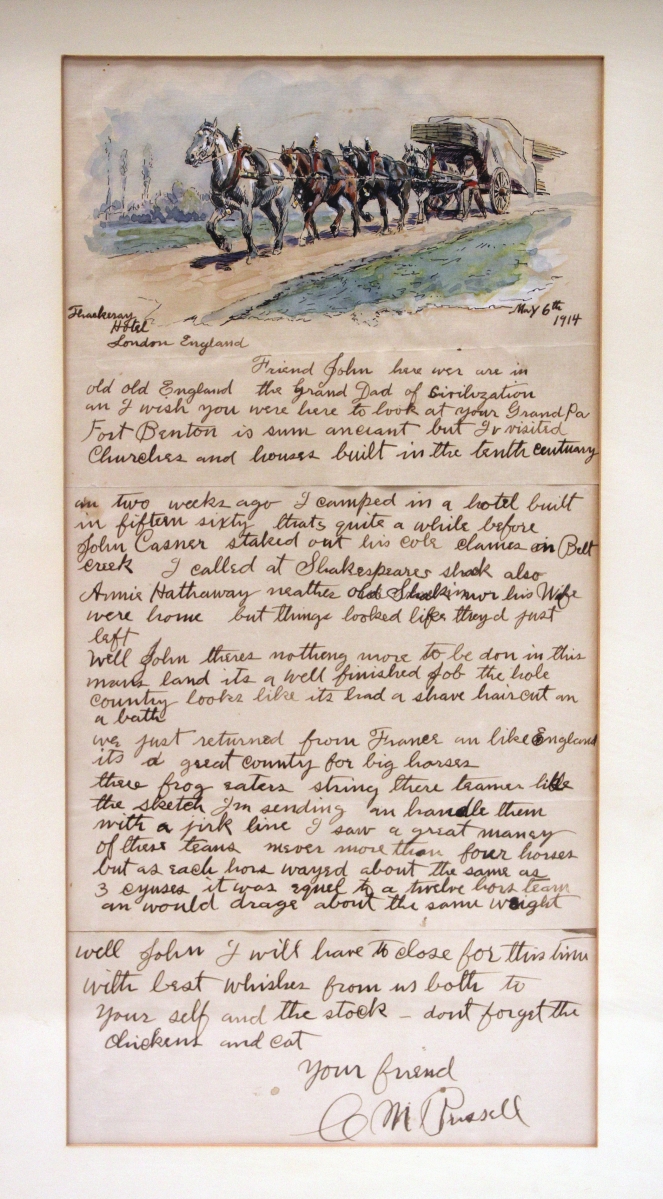 Thackeray
Hotel
London England
May 6th
1914
Friend John here wer are in
old old England the Grand Dad of Sivilization
an I wish you were here to look at your Grand Pa
Fort Benton is sum anciant but Iv visited
Churches and houses built in the tenth centuary
an two weeks ago I camped in a hotel built
in fifteen sixty thats quite a while before
John Casner staked out his cole claimes on Belt
creek I called at Shakespeares shack also
Annie Hathaway neather old Shak nor his Wife
were home but things looked like theyd just
left
Well John theres notheng more to be don in this
mans land its a well finished Job the hole
country looks like its had a shave haircut an
a bath
we just returned from France an like England
its a great county for big horses
these frog eaters string there teames like
the sketch Im sending an handle them
with a jirk line I saw a great maney
of these teams never more than four horses
but as each hors wayed about the same as
3 cyuses it was equel to a twelve hors team
an would drage about the same weight
well John I will have to close for this time
with best whishes from us both to
your self and the stock – dont forget the
chickens and cat
Your friend
C M Russell